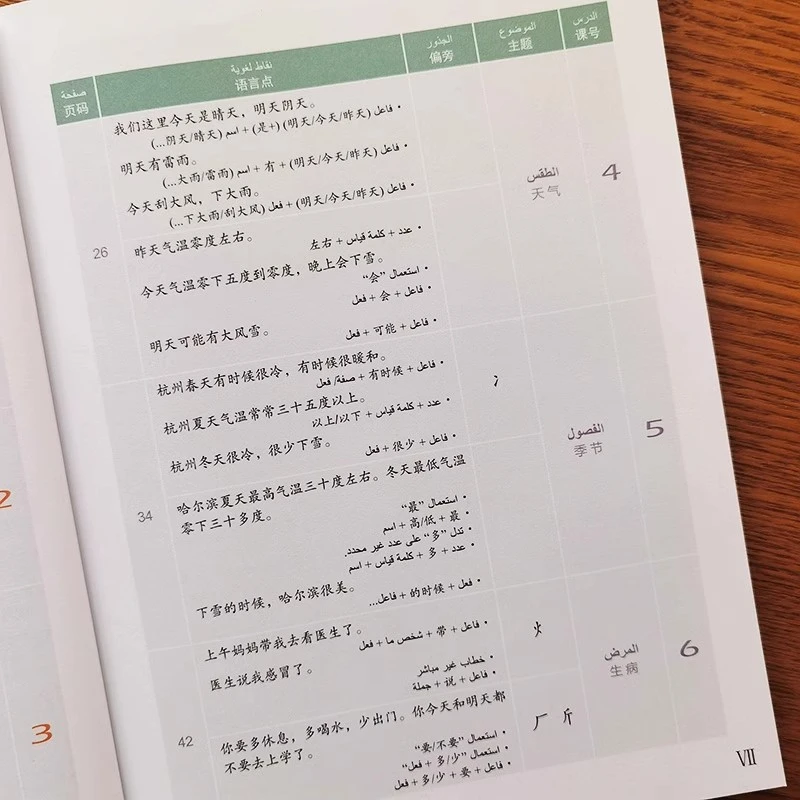 الدرس
课号
الموضوع
主题
الجذور
偏旁
نقاط لغوية
语言点
صفحة
页码
4
الطقس
天气
我们这里今天是晴天，明天阴天。
• فاعل (明天/今天/昨天) (是+) + اسم (阴天/晴天...)
明天有雷雨。
• فاعل (明天/今天/昨天) + 有 + اسم (大雨/雷雨...)
今天刮大风，下大雨。
• فاعل (明天/今天/昨天) + فعل (下大雨/刮大风...)
26
昨天气温零度左右。
• عدد + كلمة قياس + 左右
今天气温零下五度到零度，晚上会下雪。
• استعمال “会”
• فاعل + 会 + فعل
明天可能有大风雪。
• فاعل + 可能 + فعل
5
الفصول
季节
冫
杭州春天有时候很冷，有时候很暖和。
• فاعل + 有时候 + صفة/ فعل
杭州夏天气温常常三十五度以上。
• عدد + كلمة قياس + 以上/以下
杭州冬天很冷，很少下雪。
• فاعل + 很少 + فعل
34
哈尔滨夏天最高气温三十度左右。冬天最低气温
零下三十多度。
• استعمال “最”
• 最 + 高/低 + اسم
• تدل “多” على عدد غير محدد.
• عدد + 多 + كلمة قياس + اسم
下雪的时候，哈尔滨很美。
• فعل + 的时候 + فاعل...
6
المرض
生病
火
上午妈妈带我去看医生了。
• فاعل + 带 + شخص ما + فعل
医生说我感冒了。
• خطاب غير مباشر
• فاعل + 说 + جملة
42
厂 斤
你要多休息，多喝水，少出门。你今天和明天都
不要去上学了。
• استعمال “要/不要”
• استعمال “多/少 + فعل”
• فاعل + 要 + 多/少 + فعل
VII
2
3